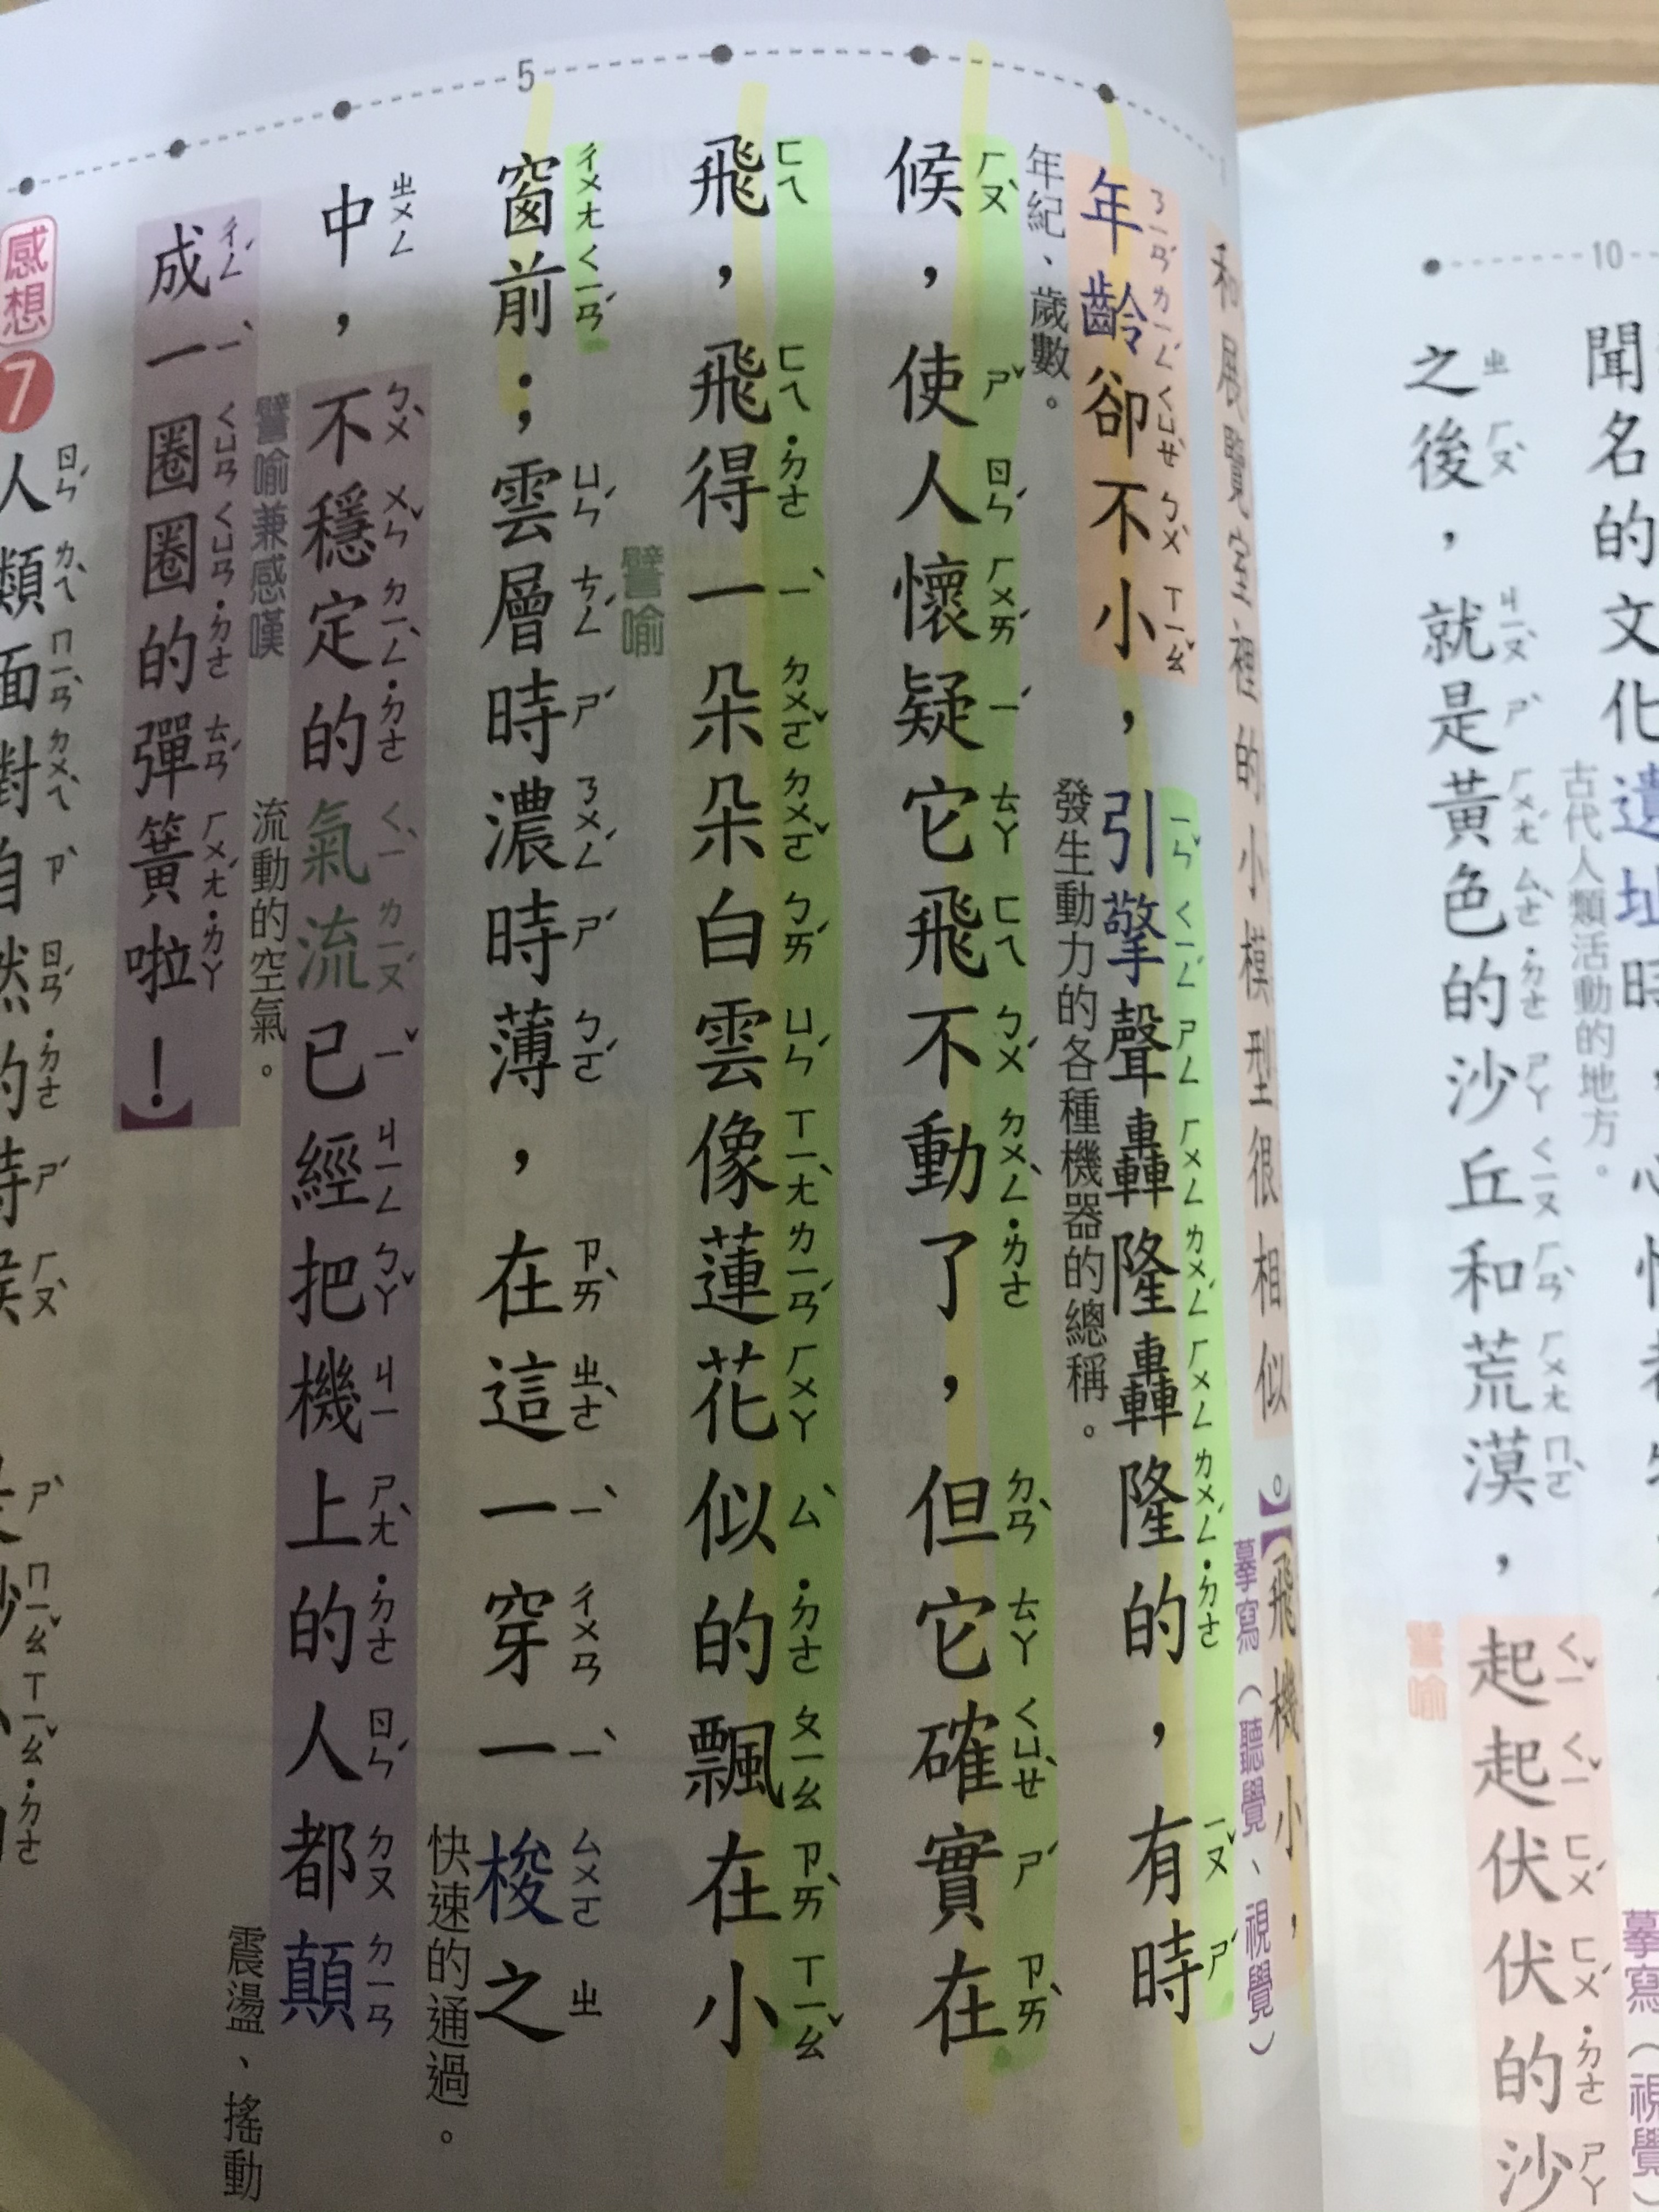 10
聞名的文化遺址時，
古代人類活動的地方。
之後，就是黃色的沙丘和荒漠，起起伏伏的沙
譬喻
摹寫（視覺）
和展覽室裡的小模型很相似。】【飛機小，
摹寫（聽覺、視覺）
年齡卻不小，引擎聲轟隆轟隆的，有時
年紀、歲數。
發生動力的各種機器的總稱。
候，使人懷疑它飛不動了，但它確實在
飛，飛得一朵朵白雲像蓮花似的飄在小
譬喻
5
窗前；雲層時濃時薄，在這一穿一梭之
快速的通過。
中，不穩定的氣流已經把機上的人都顛
譬喻兼感嘆
流動的空氣。
震盪、搖動
成一圈圈的彈簧啦！】
感想
7
人類面對自然的時候